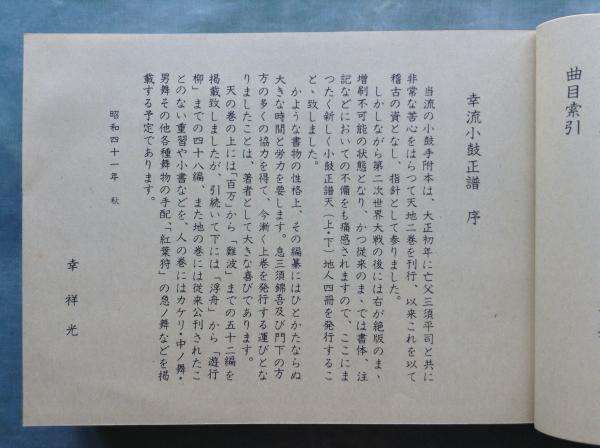 曲目索引
幸流小鼓正譜　序
当流の小鼓手附本は、大正初年に亡父三須平司と共に
非常な苦心をはらつて天地二巻を刊行、以来これを以て
稽古の資となし、指針として参りました。
しかしながら第二次世界大戦の後には右が絶版のまゝ、
増刷不可能の状態となり、かつ従来のまゝでは書体、注
記などにおいての不備をも痛感されますので、ここにま
つたく新しく小鼓正譜天（上・下）地人四冊を発行するこ
とゝ致しました。
かような書物の性格上、その編纂にはひとかたならぬ
大きな時間と労力を要します。息三須錦吾及び門下の方
方の多くの協力を得て、今漸く上巻を発行する運びとな
りましたことは、著者として大きな喜びであります。
天の巻の上には「百万」から「難波」までの五十二編を
掲載致しましたが、引続いて下には「浮舟」から「遊行
柳」までの四十八編、また地の巻には従来公刊されたこ
とのない重習や小書などを、人の巻にはカケリ・中ノ舞・
男舞その他各種舞物の手配、「紅葉狩」の急ノ舞などを掲
載する予定であります。
昭和四十一年　秋
幸　祥光